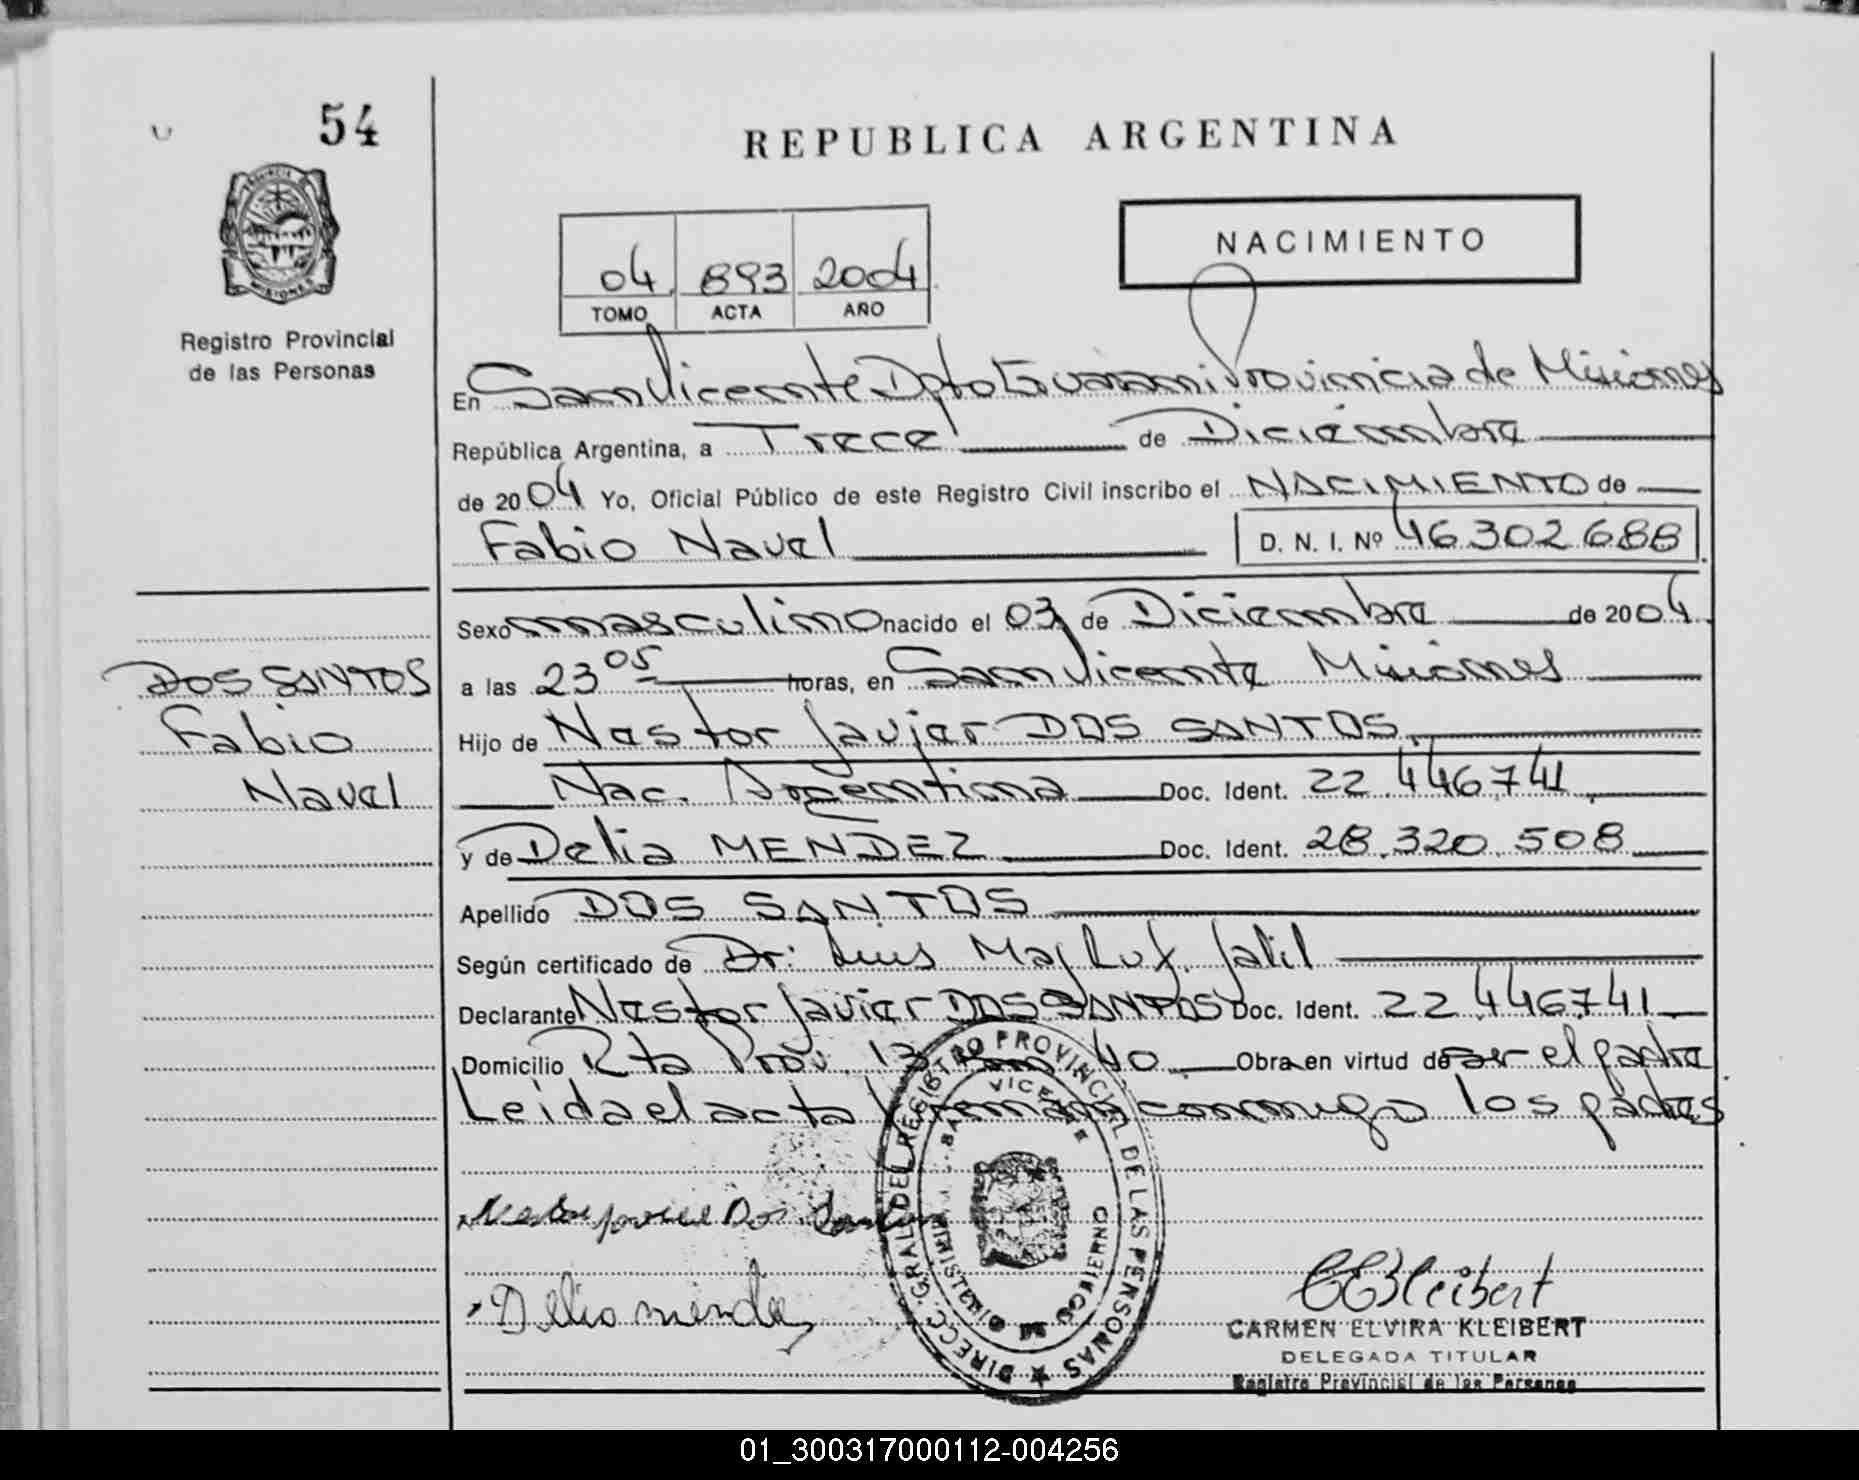 54
REPUBLICA ARGENTINA
PROVINCIA
MISIONES
Registro Provincial
de las Personas
04 893 2004
TOMO ACTA AÑO
NACIMIENTO
En San Vicente Dpto Guarani Provincia de Misiones
República Argentina, a Trece de Diciembre
de 2004 Yo, Oficial Público de este Registro Civil inscribo el NACIMIENTO de
Fabio Nauel D. N. I. Nº 46.302.688
Sexo masculino nacido el 03 de Diciembre de 2004
a las 23 05 horas, en San Vicente Misiones
Hijo de Nestor Javier DOS SANTOS
Nac. Argentina Doc. Ident. 22.446.741
y de Delia MENDEZ Doc. Ident. 28.320.508
Apellido DOS SANTOS
Según certificado de Dr: Luis Jalil
Declarante Nestor Javier DOS SANTOS Doc. Ident. 22.446.741
Domicilio Rta Prov. 13 Km 40 Obra en virtud de ser el padre
Leida el acta firman conmigo los padres
DOS SANTOS
Fabio
Nauel
Nestor Javier Dos Santos
Delia mendez
DIRECC. GRAL. DEL REGISTRO PROVINCIAL DE LAS PERSONAS
SAN VICENTE
MINISTERIO DE GOBIERNO
CEKleibert
CARMEN ELVIRA KLEIBERT
DELEGADA TITULAR
Registro Provincial de las Personas
01_300317000112-004256